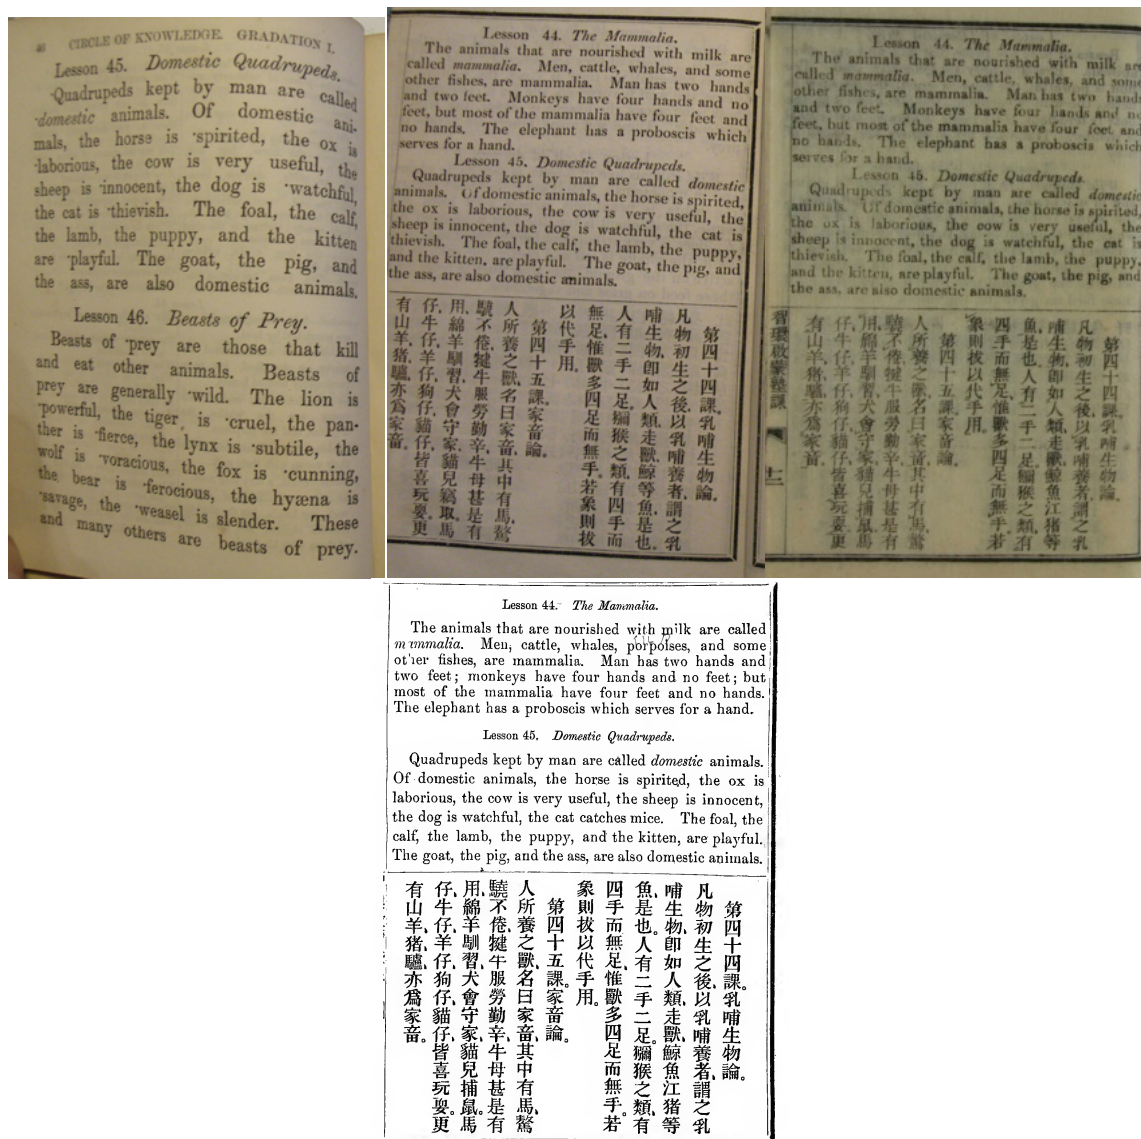 46 CIRCLE OF KNOWLEDGE. GRADATION I.
Lesson 45. Domestic Quadrupeds.
Quadrupeds kept by man are called
domestic animals. Of domestic ani-
mals, the horse is spirited, the ox is
laborious, the cow is very useful, the
sheep is innocent, the dog is watchful,
the cat is thievish. The foal, the calf,
the lamb, the puppy, and the kitten
are playful. The goat, the pig, and
the ass, are also domestic animals.
Lesson 46. Beasts of Prey.
Beasts of prey are those that kill
and eat other animals. Beasts of
prey are generally wild. The lion is
powerful, the tiger is cruel, the pan-
ther is fierce, the lynx is subtile, the
wolf is voracious, the fox is cunning,
the bear is ferocious, the hyæna is
savage, the weasel is slender. These
and many others are beasts of prey.
Lesson 44. The Mammalia.
The animals that are nourished with milk are
called mammalia. Men, cattle, whales, and some
other fishes, are mammalia. Man has two hands
and two feet. Monkeys have four hands and no
feet, but most of the mammalia have four feet and
no hands. The elephant has a proboscis which
serves for a hand.
Lesson 45. Domestic Quadrupeds.
Quadrupeds kept by man are called domestic
animals. Of domestic animals, the horse is spirited,
the ox is laborious, the cow is very useful, the
sheep is innocent, the dog is watchful, the cat is
thievish. The foal, the calf, the lamb, the puppy,
and the kitten, are playful. The goat, the pig, and
the ass, are also domestic animals.
第四十四課。乳哺生物論。
凡物初生之後、以乳哺養者、謂之乳
哺生物、卽如人類、走獸、鯨等魚、是也。
人有二手二足。獼猴之類、有四手而
無足、惟獸多四足而無手。若象則拔
以代手用。
第四十五課。家畜論。
人所養之獸、名曰家畜、其中有馬、驁
驍不倦、犍牛服勞勤辛、牛母甚是有
用、綿羊馴習、犬會守家、貓兒竊取。馬
仔、牛仔、羊仔、狗仔、貓仔、皆喜玩耍。更
有山羊、猪、驢、亦爲家畜。
Lesson 44. The Mammalia.
The animals that are nourished with milk are
called mammalia. Men, cattle, whales, and some
other fishes, are mammalia. Man has two hands
and two feet. Monkeys have four hands and no
feet, but most of the mammalia have four feet and
no hands. The elephant has a proboscis which
serves for a hand.
Lesson 45. Domestic Quadrupeds.
Quadrupeds kept by man are called domestic
animals. Of domestic animals, the horse is spirited,
the ox is laborious, the cow is very useful, the
sheep is innocent, the dog is watchful, the cat is
thievish. The foal, the calf, the lamb, the puppy,
and the kitten, are playful. The goat, the pig, and
the ass, are also domestic animals.
第四十四課。乳哺生物論。
凡物初生之後、以乳哺養者、謂之乳
哺生物、卽如人類、走獸、鯨魚江猪等
魚、是也。人有二手二足。獼猴之類、有
四手而無足、惟獸多四足而無手。若
象則拔以代手用。
第四十五課。家畜論。
人所養之獸、名曰家畜、其中有馬、驁
驍不倦、犍牛服勞勤辛、牛母甚是有
用、綿羊馴習、犬會守家、貓兒捕鼠。馬
仔、牛仔、羊仔、狗仔、貓仔、皆喜玩耍。更
有山羊、猪、驢、亦爲家畜。
智環啟蒙塾課 十二
Lesson 44. The Mammalia.
The animals that are nourished with milk are called
mammalia. Men, cattle, whales, porpoises, and some
other fishes, are mammalia. Man has two hands and
two feet; monkeys have four hands and no feet; but
most of the mammalia have four feet and no hands.
The elephant has a proboscis which serves for a hand.
Lesson 45. Domestic Quadrupeds.
Quadrupeds kept by man are called domestic animals.
Of domestic animals, the horse is spirited, the ox is
laborious, the cow is very useful, the sheep is innocent,
the dog is watchful, the cat catches mice. The foal, the
calf, the lamb, the puppy, and the kitten, are playful.
The goat, the pig, and the ass, are also domestic animals.
第四十四課。乳哺生物論。
凡物初生之後、以乳哺養者、謂之乳
哺生物、卽如人類、走獸、鯨魚江猪等
魚、是也。人有二手二足。獼猴之類、有
四手而無足、惟獸多四足而無手。若
象則拔以代手用。
第四十五課。家畜論。
人所養之獸、名曰家畜、其中有馬、驁
驍不倦、犍牛服勞勤辛、牛母甚是有
用、綿羊馴習、犬會守家、貓兒捕鼠。馬
仔、牛仔、羊仔、狗仔、貓仔、皆喜玩耍。更
有山羊、猪、驢、亦爲家畜。